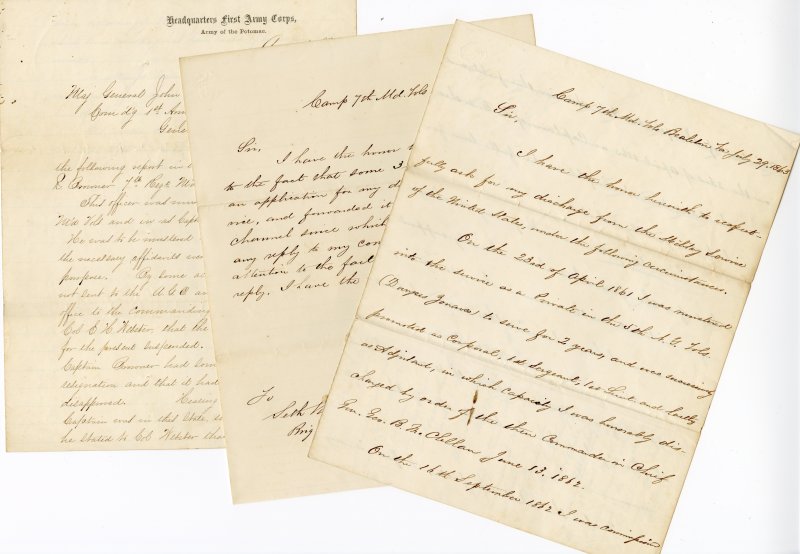 Headquarters First Army Corps,
Army of the Potomac.
Maj General John
Comdg 1st Arm
Genl
the following report in
R Bonner 7th Regt Md
This officer was mus
Md Vols and in as Capt
He was to be mustered
the necessary affidavits
purpose. By some
not sent to the A.G.O an
office to the Commanding
Col E H Webster, that the
for the present suspended.
Captain had
resignation and that it had
disapproved.
Captain was in this State
he stated to Col Webster tha
Camp 7th Md. Vols
Sir,
I have the honor
to the fact that some 3
an application for my d
vice, and forwarded it
channel since which
any reply to my com
attention to the fact
reply. I have the
To
Seth
Brig
Camp 7th Md. Vols Bealeton Va. July 29, 1863
Sir,
I have the honor herewith to respect-
fully ask for my discharge from the Military Service
of the United States, under the following circumstances.
On the 23rd of April 1861 I was mustered
into the service as a Private in the 5th N.Y. Vols.
(Duryees Zouaves) to serve for 2 years, and was successively
promoted as Corporal, 1st Sergeant, 1st Lieut and lastly
as Adjutant, in which capacity I was honorably dis-
charged by order of the then Commander in Chief
Gen. Geo. B. McClellan June 13, 1862.
On the 16th September 1862 I was commission